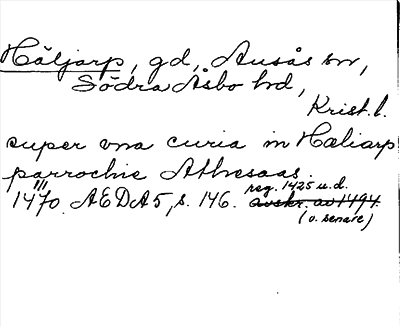 Häljarp, gd, Ausås sn,
Södra Åsbo hd,
Krist. l.
super vna curia in Hæliarp
parrochie Athesaas.
1470. AEDA 5, s. 146. reg. 1425 u.d.
avskr. av 1494.
(o. senare)